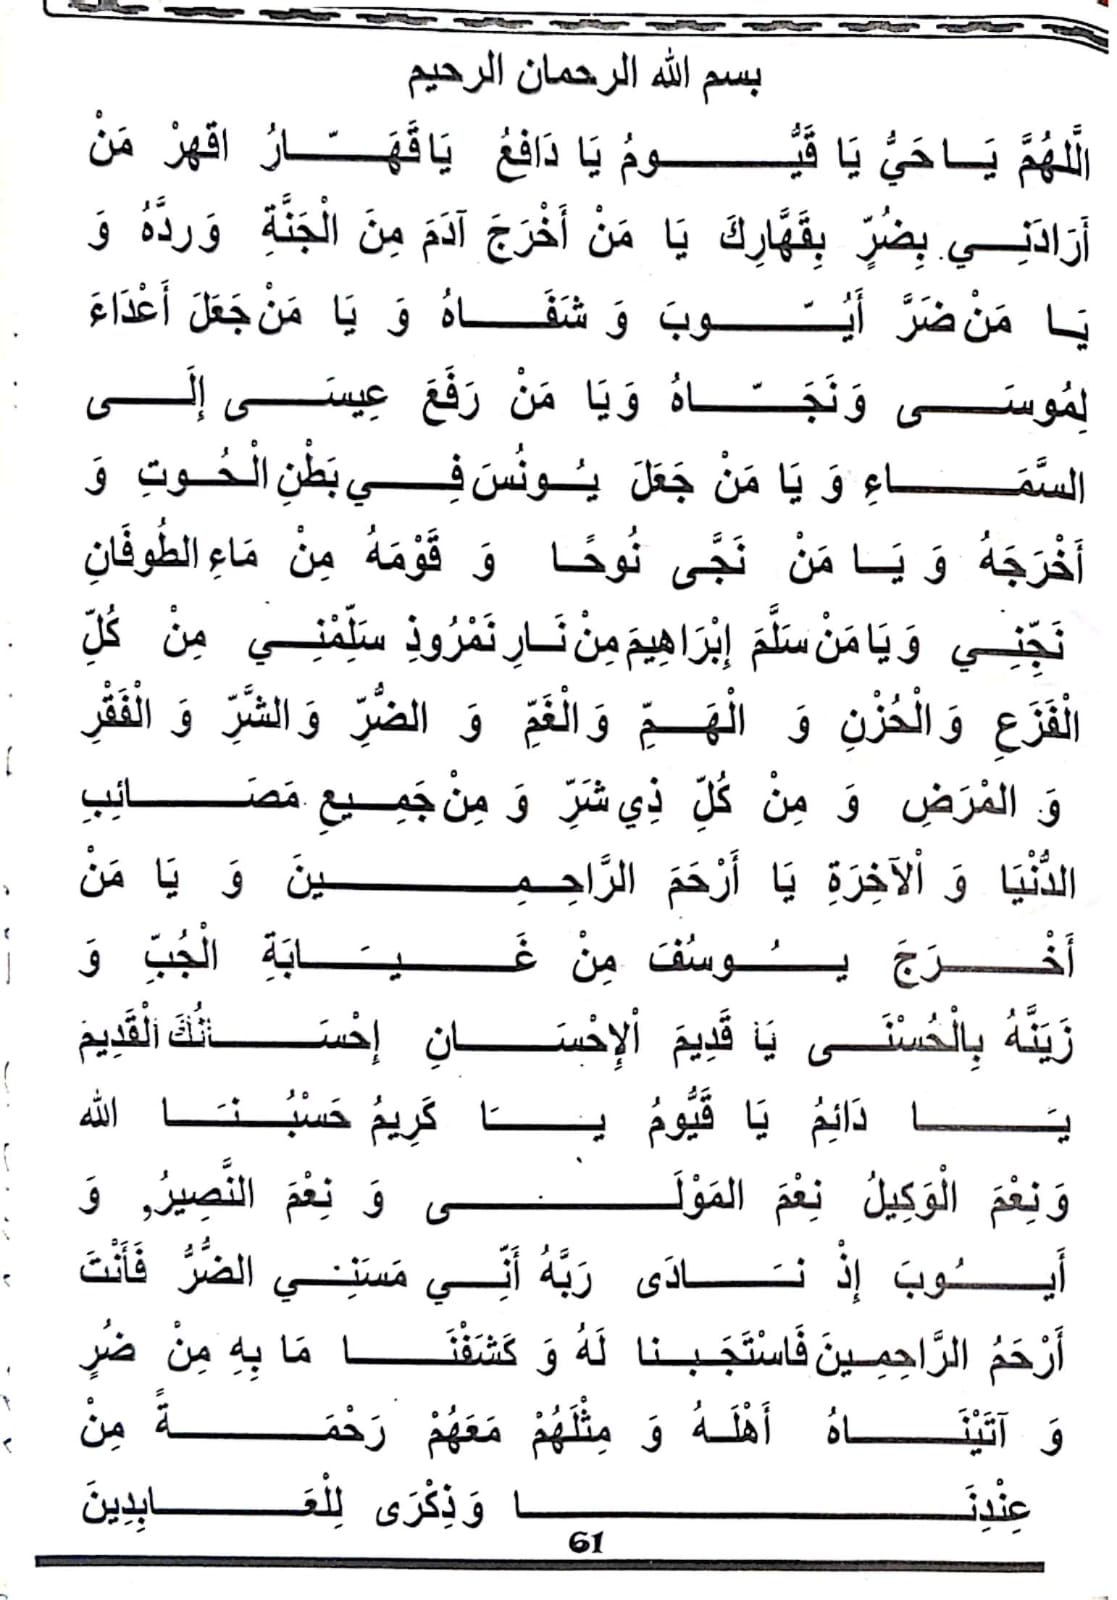 بسم الله الرحمان الرحيم
الَّلهُمَّ يَا حَيُّ يَا قَيُّومُ يَا دَافِعُ يَا قَهَّارُ اقْهِرْ مَنْ
أَرَادَنِي بِضُرٍّ بِقَهَّارِكَ يَا مَنْ أَخْرَجَ آدَمَ مِنَ الْجَنَّةِ وَردَّهُ وَ
يَا مَنْ ضَرَّ أَيُّوبَ وَ شَفَاهُ وَ يَا مَنْ جَعَلَ أَعْدَاءَ
لِمُوسَى وَنَجَّاهُ وَيَا مَنْ رَفَعَ عِيسَى إِلَى
السَّمَاءِ وَ يَا مَنْ جَعَلَ يُونُسَ فِي بَطْنِ الْحُوتِ وَ
أَخْرَجَهُ وَ يَا مَنْ نَجَّى نُوحًا وَ قَوْمَهُ مِنْ مَاءِ الطُوفَانِ
نَجِّنِي وَيَا مَنْ سَلَّمَ إِبْرَاهِيمَ مِنْ نَارِ نَمْرُوذِ سَلِّمْنِي مِنْ كُلِّ
الْفَزَعِ وَالْحُزْنِ وَ الْهَمِّ وَالْغَمِّ وَ الضُّرِّ وَالشَّرِّ وَ الْفَقْرِ
وَ الْمْرَضِ وَ مِنْ كُلِّ ذِي شَرِّ وَ مِنْ جَمِيعِ مَصَائِبِ
الدُّنْيَا وَ الْآخِرَةِ يَا أَرْحَمَ الرَّاحِمِينَ وَ يَا مَنْ
أَخْرَجَ يُوسُفَ مِنْ غَيَابَةِ الْجُبِّ وَ
زَيَنَّهُ بِالْحُسْنَى يَا قَدِيمَ الْإِحْسَانِ إِحْسَانُكَ الْقَدِيمَ
يَا دَائِمُ يَا قَيُّومُ يَا كَرِيمُ حَسْبُنَا الله
وَنِعْمَ الْوَكِيلُ نِعْمَ المَوْلَى وَ نِعْمَ النَّصِيرُ, وَ
أَيُوبَ إِذْ نَادَى رَبَّهُ أَنِّي مَسَنِي الضُّرُّ فَأَنْتَ
أَرْحَمُ الرَّاحِمِينَ فَاسْتَجَبنا لَهُ وَ كَشَفْنَا مَا بِهِ مِنْ ضُرٍ
وَ آتَيْنَاهُ أَهْلَهُ وَ مِثْلَهُمْ مَعَهُمْ رَحْمَةً مِنْ
عِنْدِنَا وَذِكْرَى لِلْعَابِدِينَ
61